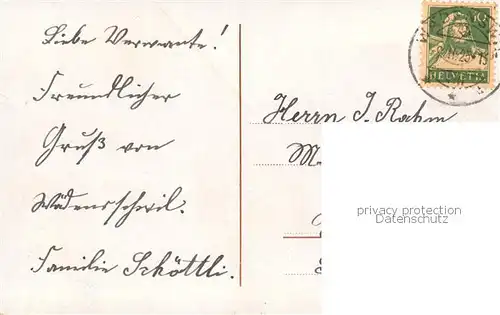 Liebe Verwante!
Freundlicher
Gruß von
Wädenschwil.
Familie Schöttli.
10
HELVETIA
Herrn J. Rahm
M
privacy protection
Datenschutz